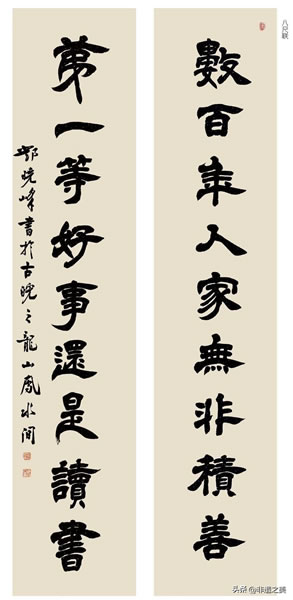 八尺联
數百年人家無非積善
第一等好事還是讀書
鄂曉峰書於古皖之龍山鳳水間
头条@非遗之美